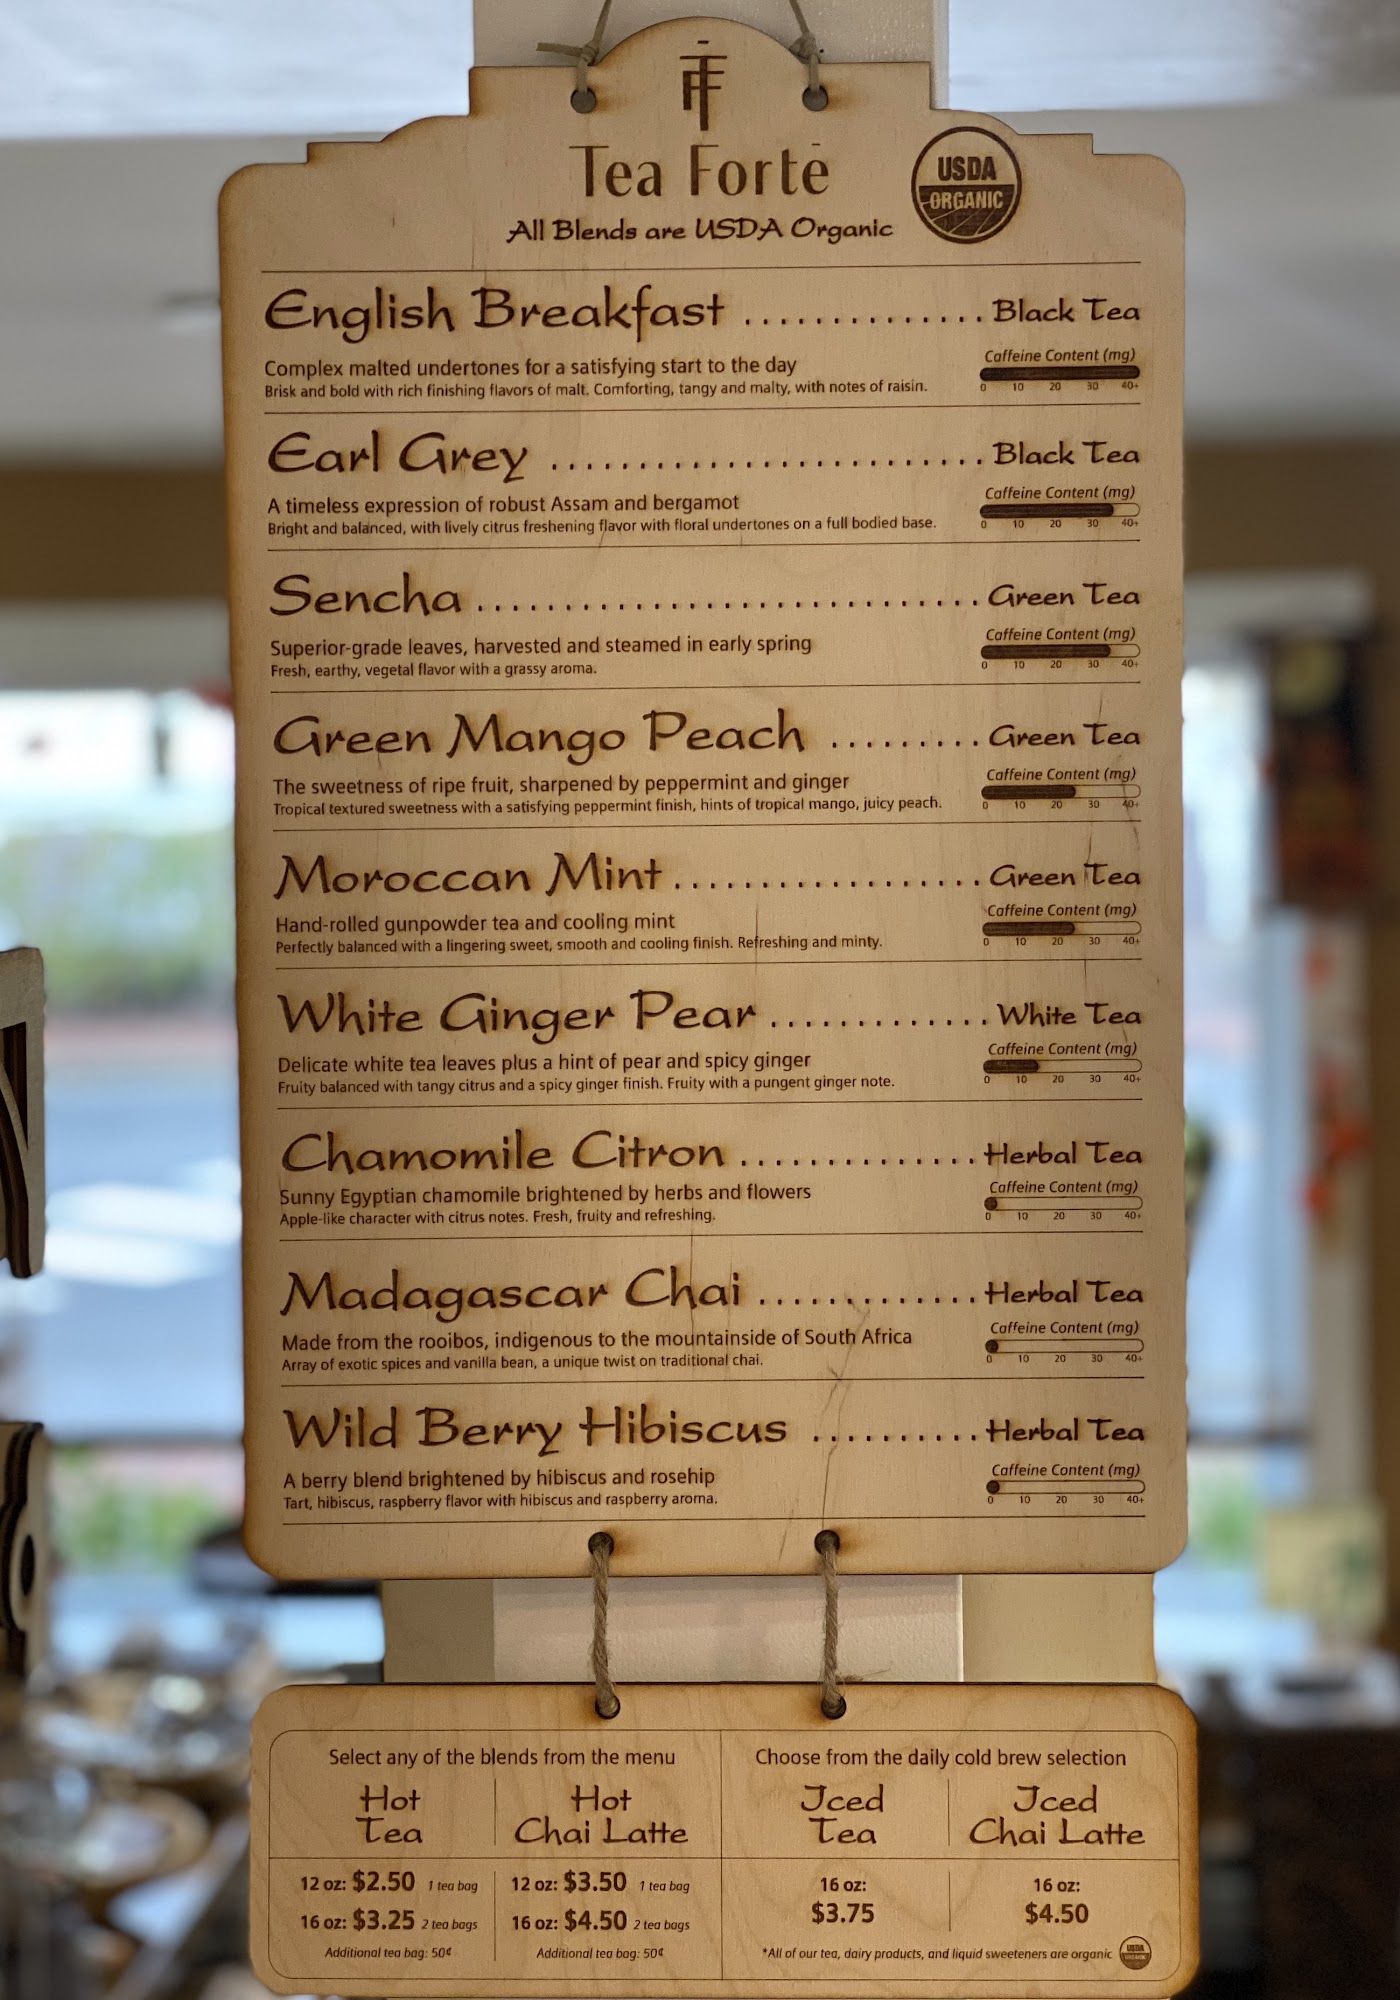 TF
Tea Forté
All Blends are USDA Organic
USDA
ORGANIC
English Breakfast .............. Black Tea
Complex malted undertones for a satisfying start to the day
Brisk and bold with rich finishing flavors of malt. Comforting, tangy and malty, with notes of raisin.
Caffeine Content (mg)
0 10 20 30 40+
Earl Grey .......................... Black Tea
A timeless expression of robust Assam and bergamot
Bright and balanced, with lively citrus freshening flavor with floral undertones on a full bodied base.
Caffeine Content (mg)
0 10 20 30 40+
Sencha ............................ Green Tea
Superior-grade leaves, harvested and steamed in early spring
Fresh, earthy, vegetal flavor with a grassy aroma.
Caffeine Content (mg)
0 10 20 30 40+
Green Mango Peach ......... Green Tea
The sweetness of ripe fruit, sharpened by peppermint and ginger
Tropical textured sweetness with a satisfying peppermint finish, hints of tropical mango, juicy peach.
Caffeine Content (mg)
0 10 20 30 40+
Moroccan Mint .................. Green Tea
Hand-rolled gunpowder tea and cooling mint
Perfectly balanced with a lingering sweet, smooth and cooling finish. Refreshing and minty.
Caffeine Content (mg)
0 10 20 30 40+
White Ginger Pear ............. White Tea
Delicate white tea leaves plus a hint of pear and spicy ginger
Fruity balanced with tangy citrus and a spicy ginger finish. Fruity with a pungent ginger note.
Caffeine Content (mg)
0 10 20 30 40+
Chamomile Citron .............. Herbal Tea
Sunny Egyptian chamomile brightened by herbs and flowers
Apple-like character with citrus notes. Fresh, fruity and refreshing.
Caffeine Content (mg)
0 10 20 30 40+
Madagascar Chai ............. Herbal Tea
Made from the rooibos, indigenous to the mountainside of South Africa
Array of exotic spices and vanilla bean, a unique twist on traditional chai.
Caffeine Content (mg)
0 10 20 30 40+
Wild Berry Hibiscus .......... Herbal Tea
A berry blend brightened by hibiscus and rosehip
Tart, hibiscus, raspberry flavor with hibiscus and raspberry aroma.
Caffeine Content (mg)
0 10 20 30 40+
Select any of the blends from the menu
Hot
Tea
12 oz: $2.50 1 tea bag
16 oz: $3.25 2 tea bags
Additional tea bag: 50¢
Hot
Chai Latte
12 oz: $3.50 1 tea bag
16 oz: $4.50 2 tea bags
Additional tea bag: 50¢
Choose from the daily cold brew selection
Iced
Tea
16 oz:
$3.75
Iced
Chai Latte
16 oz:
$4.50
*All of our tea, dairy products, and liquid sweeteners are organic
USDA
ORGANIC